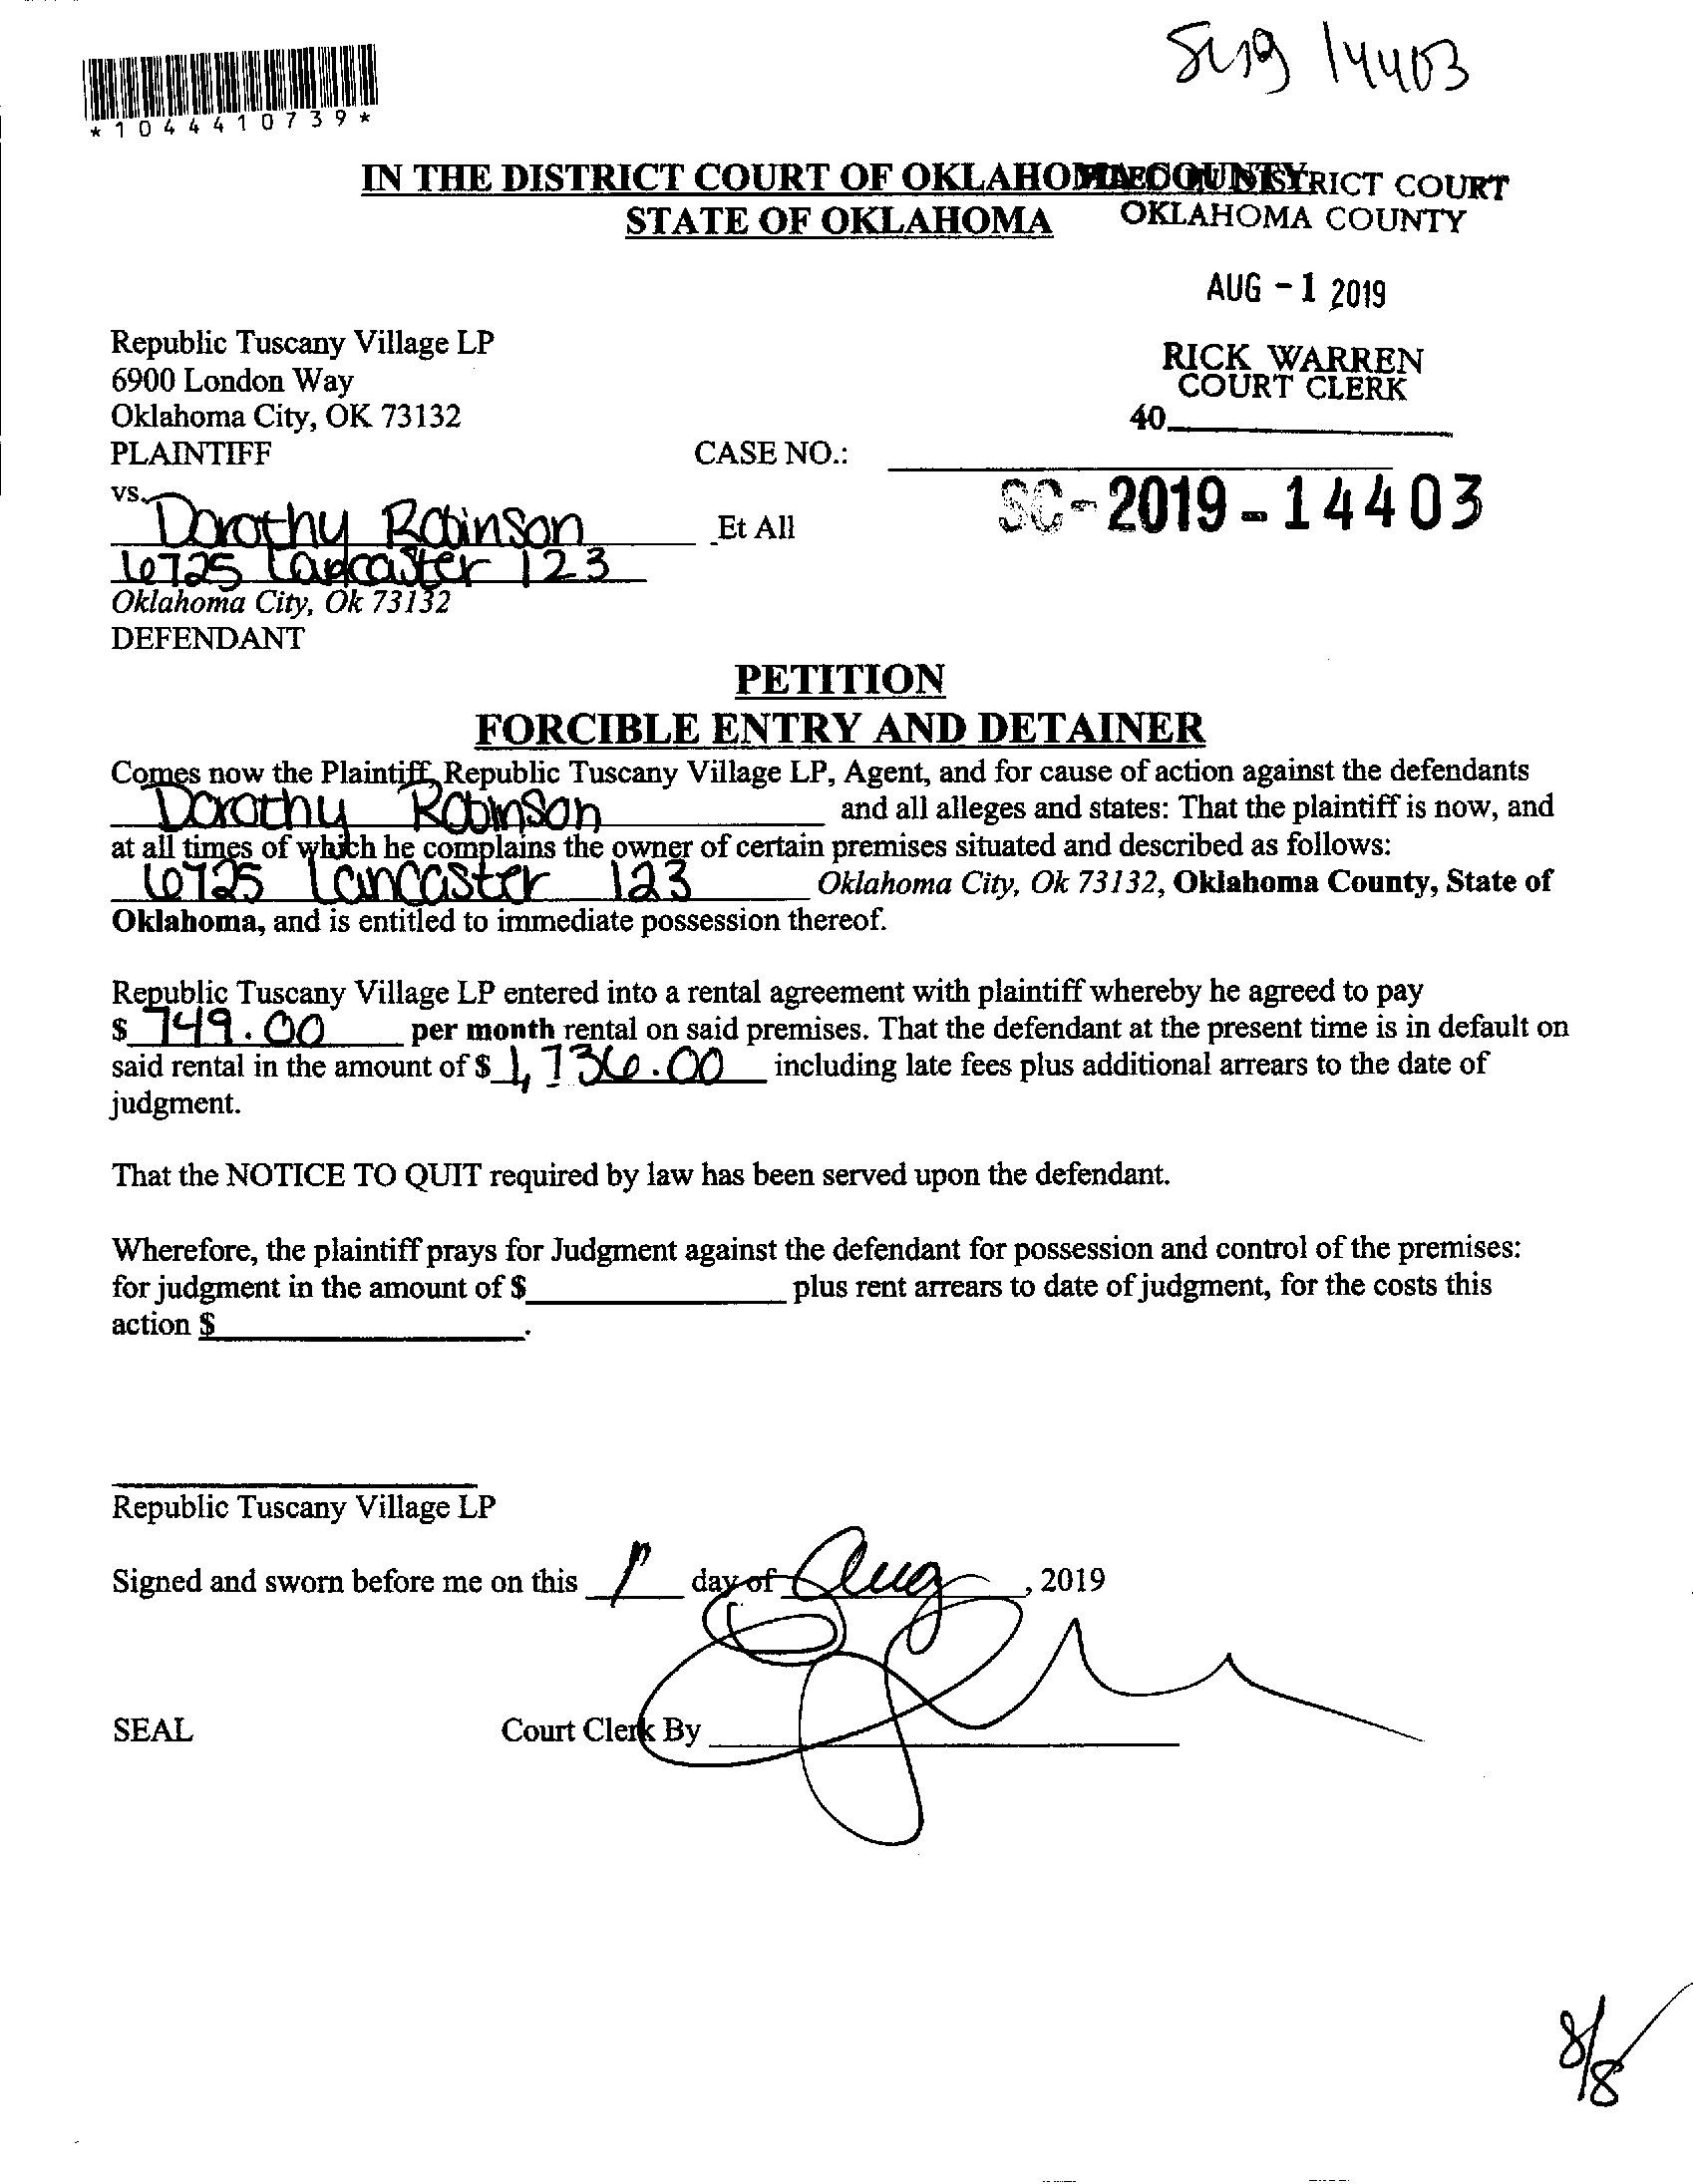 SC19 14403
*1044410739*
IN THE DISTRICT COURT OF OKLAHOMA COUNTY
STATE OF OKLAHOMA
FILED IN DISTRICT COURT
OKLAHOMA COUNTY
AUG - 1 2019
RICK WARREN
COURT CLERK
40
Republic Tuscany Village LP
6900 London Way
Oklahoma City, OK 73132
PLAINTIFF
CASE NO.:
SC-2019-14403
vs.
Dorothy Robinson Et All
6725 Lancaster 123
Oklahoma City, Ok 73132
DEFENDANT
PETITION
FORCIBLE ENTRY AND DETAINER
Comes now the Plaintiff, Republic Tuscany Village LP, Agent, and for cause of action against the defendants
Dorothy Robinson and all alleges and states: That the plaintiff is now, and
at all times of which he complains the owner of certain premises situated and described as follows:
6725 Lancaster 123 Oklahoma City, Ok 73132, Oklahoma County, State of
Oklahoma, and is entitled to immediate possession thereof.
Republic Tuscany Village LP entered into a rental agreement with plaintiff whereby he agreed to pay
$ 749.00 per month rental on said premises. That the defendant at the present time is in default on
said rental in the amount of $ 1,736.00 including late fees plus additional arrears to the date of
judgment.
That the NOTICE TO QUIT required by law has been served upon the defendant.
Wherefore, the plaintiff prays for Judgment against the defendant for possession and control of the premises:
for judgment in the amount of $ plus rent arrears to date of judgment, for the costs this
action $ .
Republic Tuscany Village LP
Signed and sworn before me on this 1 day of Aug, 2019
SEAL Court Clerk By
8/8